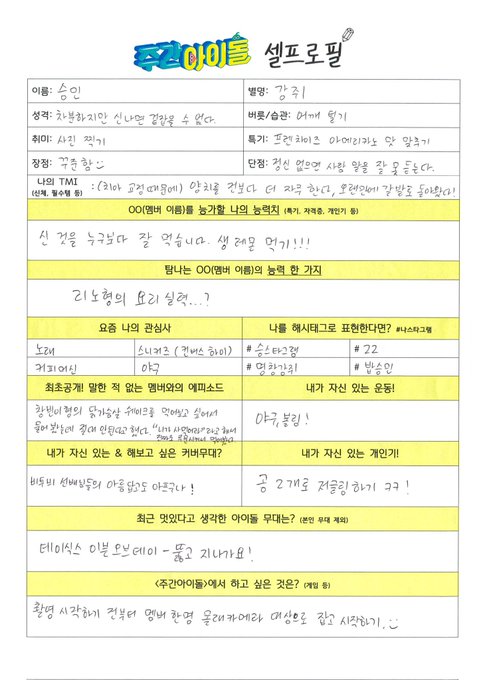 주간아이돌 셀프로필
이름: 승민 별명: 강쥐
성격: 차분하지만 신나면 겉잡을 수 없다. 버릇/습관: 어깨 털기
취미: 사진 찍기 특기: 프랜차이즈 아메리카노 맛 맞추기
장점: 꾸준함 단점: 정신 없으면 사람 말을 잘 못 듣는다.
나의 TMI
(신체, 필수템 등) : (치아 교정때문에) 양치를 전보다 더 자주 한다, 오랜만에 갈발로 돌아왔다!
OO(멤버 이름)를 능가할 나의 능력치 (특기, 자격증, 개인기 등)
신 것을 누구보다 잘 먹습니다. 생 레몬 먹기!!!
탐나는 OO(멤버 이름)의 능력 한 가지
리노형의 요리 실력...?
요즘 나의 관심사 나를 해시태그로 표현한다면? #나스타그램
노래 스니커즈 (컨버스 하이) # 승스타그램 # 22
커피머신 야구 # 명창강쥐 # 밥승민
최초공개! 말한 적 없는 멤버와의 에피소드 내가 자신 있는 운동!
창빈이형의 닭가슴살 쉐이크를 먹어보고 싶어서
물어봤는데 절대 안된다고 했다. "니가 사먹어라"라고 해서
야구, 볼링!
내가 자신 있는 & 해보고 싶은 커버무대? 내가 자신 있는 개인기!
비투비 선배님들의 아름답고도 아프구나! 공 2개로 저글링하기 ㅋㅋ!
최근 멋있다고 생각한 아이돌 무대는? (본인 무대 제외)
데이식스 이븐오브데이 - 뚫고 지나가요!
<주간아이돌>에서 하고 싶은 것은? (게임 등)
촬영 시작하기 전부터 멤버 한명 몰래카메라 대상으로 잡고 시작하기.